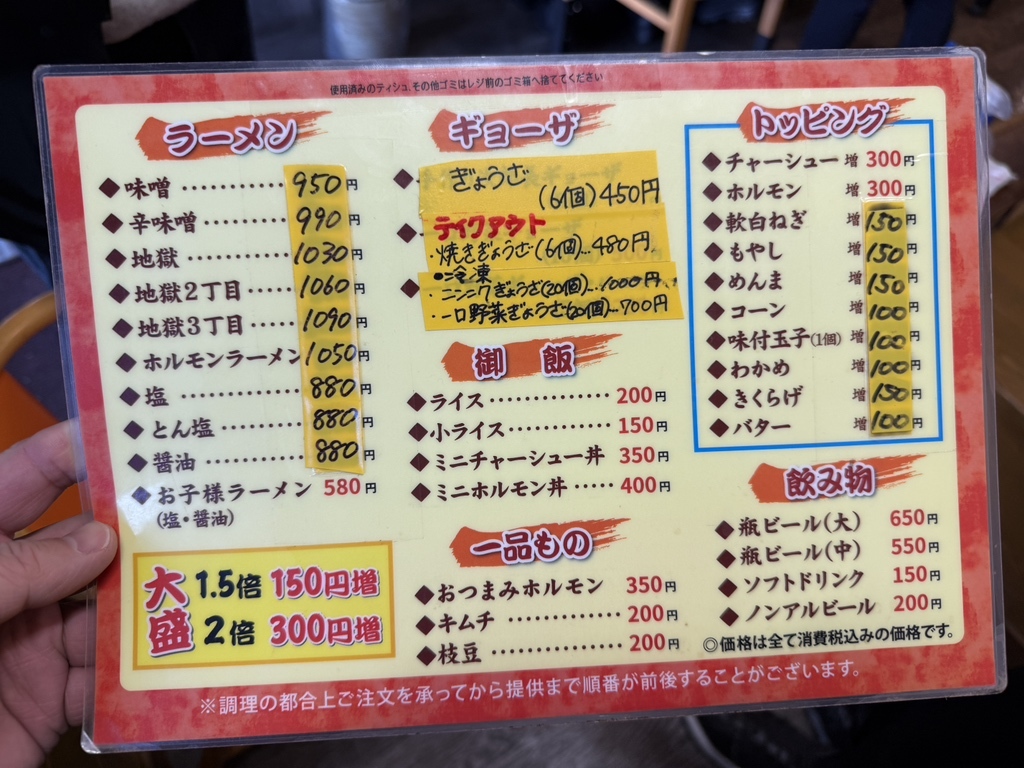 使用済みのティシュ、その他ゴミはレジ前のゴミ箱へ捨ててください
ラーメン
◆味噌 ………… 950円
◆辛味噌 ……… 990円
◆地獄 ………… 1030円
◆地獄2丁目 …… 1060円
◆地獄3丁目 …… 1090円
◆ホルモンラーメン 1050円
◆塩 …………… 880円
◆とん塩 ……… 880円
◆醤油 ………… 880円
◆お子様ラーメン 580円
(塩・醤油)
大盛
1.5倍 150円増
2倍 300円増
ギョーザ
ぎょうざ
(6個)450円
テイクアウト
・焼きぎょうざ(6個)…480円
●冷凍
・ニンニクぎょうざ(20個)…1000円
・一口野菜ぎょうざ(20個)…700円
御飯
◆ライス ………… 200円
◆小ライス ……… 150円
◆ミニチャーシュー丼 350円
◆ミニホルモン丼 …… 400円
一品もの
◆おつまみホルモン 350円
◆キムチ ………… 200円
◆枝豆 ………… 200円
トッピング
◆チャーシュー 増 300円
◆ホルモン 増 300円
◆軟白ねぎ 増 150円
◆もやし 増 150円
◆めんま 増 150円
◆コーン 増 100円
◆味付玉子(1個) 増 100円
◆わかめ 増 100円
◆きくらげ 増 150円
◆バター 増 100円
飲み物
◆瓶ビール(大) 650円
◆瓶ビール(中) 550円
◆ソフトドリンク 150円
◆ノンアルビール 200円
◎価格は全て消費税込みの価格です。
※調理の都合上ご注文を承ってから提供まで順番が前後することがございます。